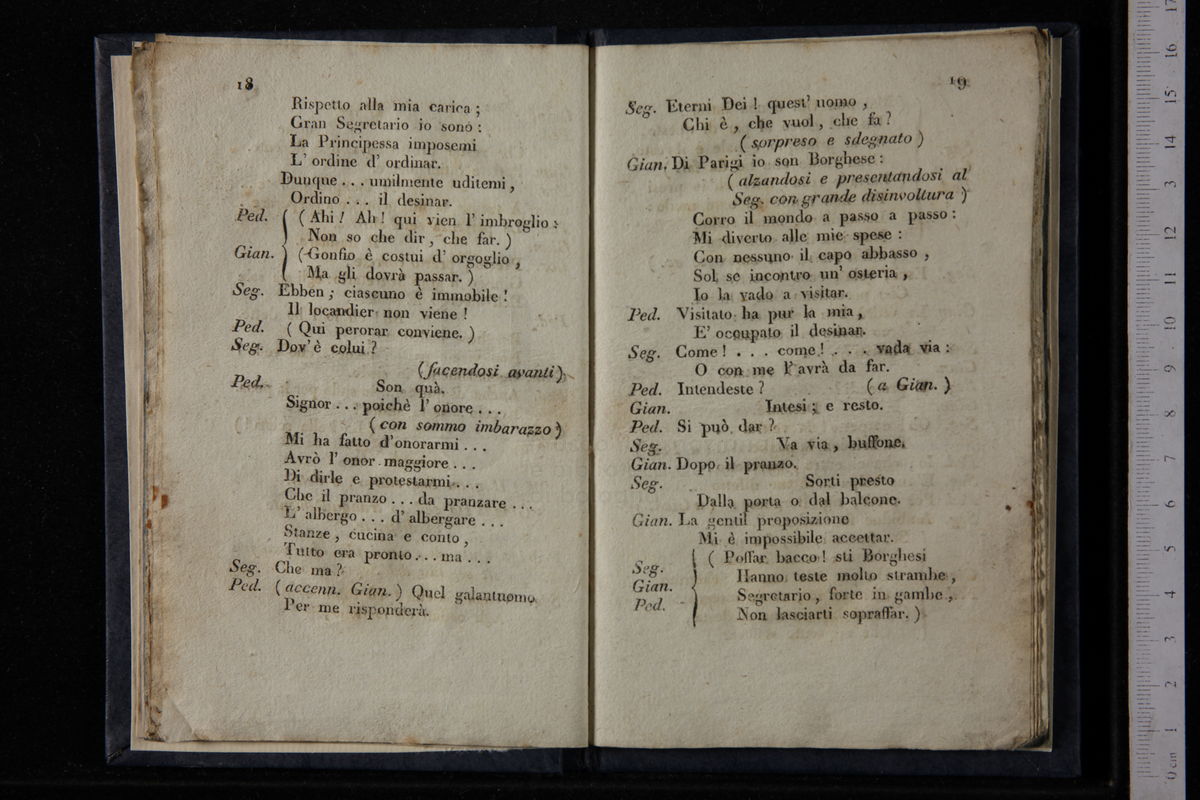 18
Rispetto alla mia carica ;
Gran Segretario io sono :
La Principessa imposemi
L' ordine d' ordinar.
Dunque . . . umilmente uditemi ,
Ordino . . . il desinar.
Ped. ( Ahi ! Ah ! qui vien l' imbroglio :
Non so che dir , che far. )
Gian. ( Gonfio è costui d' orgoglio ,
Ma gli dovrà passar. )
Seg. Ebben ; ciascuno è immobile !
Il locandier non viene !
Ped. ( Qui perorar conviene. )
Seg. Dov' è colui ?
(facendosi avanti)
Ped. Son quà.
Signor . . . poichè l' onore . . .
( con sommo imbarazzo )
Mi ha fatto d'onorarmi . . .
Avrò l' onor maggiore . . .
Di dirle e protestarmi . . .
Che il pranzo . . . da pranzare . . .
L' albergo . . . d' albergare . . .
Stanze , cucina e conto ,
Tutto era pronto . . . ma . . .
Seg. Che ma ?
Ped. ( accenn. Gian. ) Quel galantuomo
Per me risponderà.
19
Seg. Eterni Dei ! quest' uomo ,
Chi è , che vuol , che fa ?
( sorpreso e sdegnato )
Gian. Di Parigi io son Borghese :
( alzandosi e presentandosi al
Seg. con grande disinvoltura )
Corro il mondo a passo a passo :
Mi diverto alle mie spese :
Con nessuno il capo abbasso ,
Sol se incontro un' osteria ,
Io la vado a visitar.
Ped. Visitato ha pur la mia ,
E' occupato il desinar.
Seg. Come ! . . . come ! . . . vada via :
O con me l' avrà da far.
Ped. Intendeste ? ( a Gian. )
Gian. Intesi ; e resto.
Ped. Si può dar ?
Seg. Va via , buffone.
Gian. Dopo il pranzo.
Seg. Sorti presto
Dalla porta o dal balcone.
Gian. La gentil proposizione
Mi è impossibile accettar.
Seg. Gian. Ped. ( Poffar bacco ! sti Borghesi
Hanno teste molto strambe ,
Segretario , forte in gambe ,
Non lasciarti sopraffar. )
0 cm 1 2 3 4 5 6 7 8 9 10 11 12 13 14 15 16 17